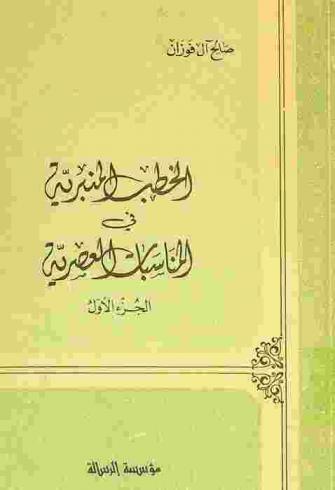 صالح آل فوزان
الخطب المنبرية
في
المناسبات العصرية
الجزء الأول
مؤسسة الرسالة